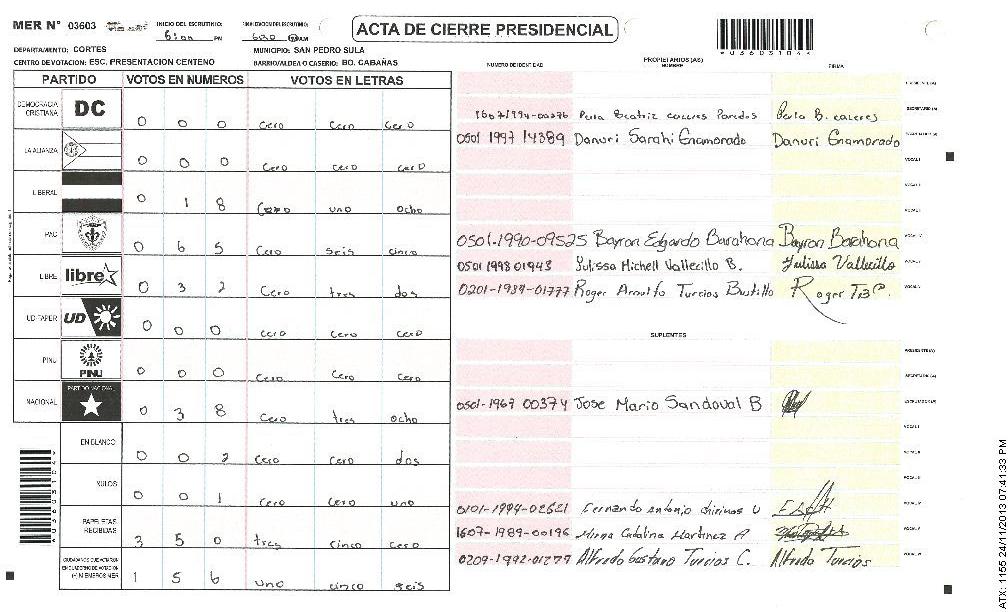 MER N° 03603 INICIO DEL ESCRUTINIO: 6:00 PM 6:20 AM
ACTA DE CIERRE PRESIDENCIAL
DEPARTAMENTO: CORTES MUNICIPIO: SAN PEDRO SULA
CENTRO DE VOTACION: ESC. PRESENTACION CENTENO BARRIO/ALDEA O CASERIO: BO. CABAÑAS
PARTIDO VOTOS EN NUMEROS VOTOS EN LETRAS
DEMOCRACIA CRISTIANA DC 0 0 0 cero cero cero
LA ALIANZA 0 0 0 cero cero cero
LIBERAL 0 1 8 cero uno ocho
PAC 0 6 5 cero seis cinco
LIBRE libre 0 3 2 cero tres dos
UD-FAPER UD 0 0 0 cero cero cero
PINU PINU 0 0 0 cero cero cero
NACIONAL PARTIDO NACIONAL 0 3 8 cero tres ocho
EN BLANCO 0 0 2 cero cero dos
NULOS 0 0 1 cero cero uno
PAPELETAS RECIBIDAS 3 5 0 tres cinco cero
1 5 6 uno cinco seis
NUMERO DE IDENTIDAD PROPIETARIOS (AS) NOMBRE FIRMA
1607/1994-00276 Perla Beatriz caceres Paredes Perla B. caceres
0501 1997 14389 Danuri Sarahi Enamorado Danuri Enamorado
0501-1990-09525 Bayron Edgardo Barahona Bayron Barahona
0501 1998 01943 Julissa Michell Vallecillo B. Julissa Vallecillo
0201-1984-01777 Roger Arnulfo Turcios Bustillo Roger T.B.
SUPLENTES
0501-1967 00374 Jose Mario Sandoval B
0101-1994-02621 Fernando Antonio chirinos U
1607-1989-00196 Mirna Catalina Martinez A
0209-1992-01279 Alfredo Gustavo Turcios C. Alfredo Turcios
ATX: 1155 24/11/2013 07:41:33 PM